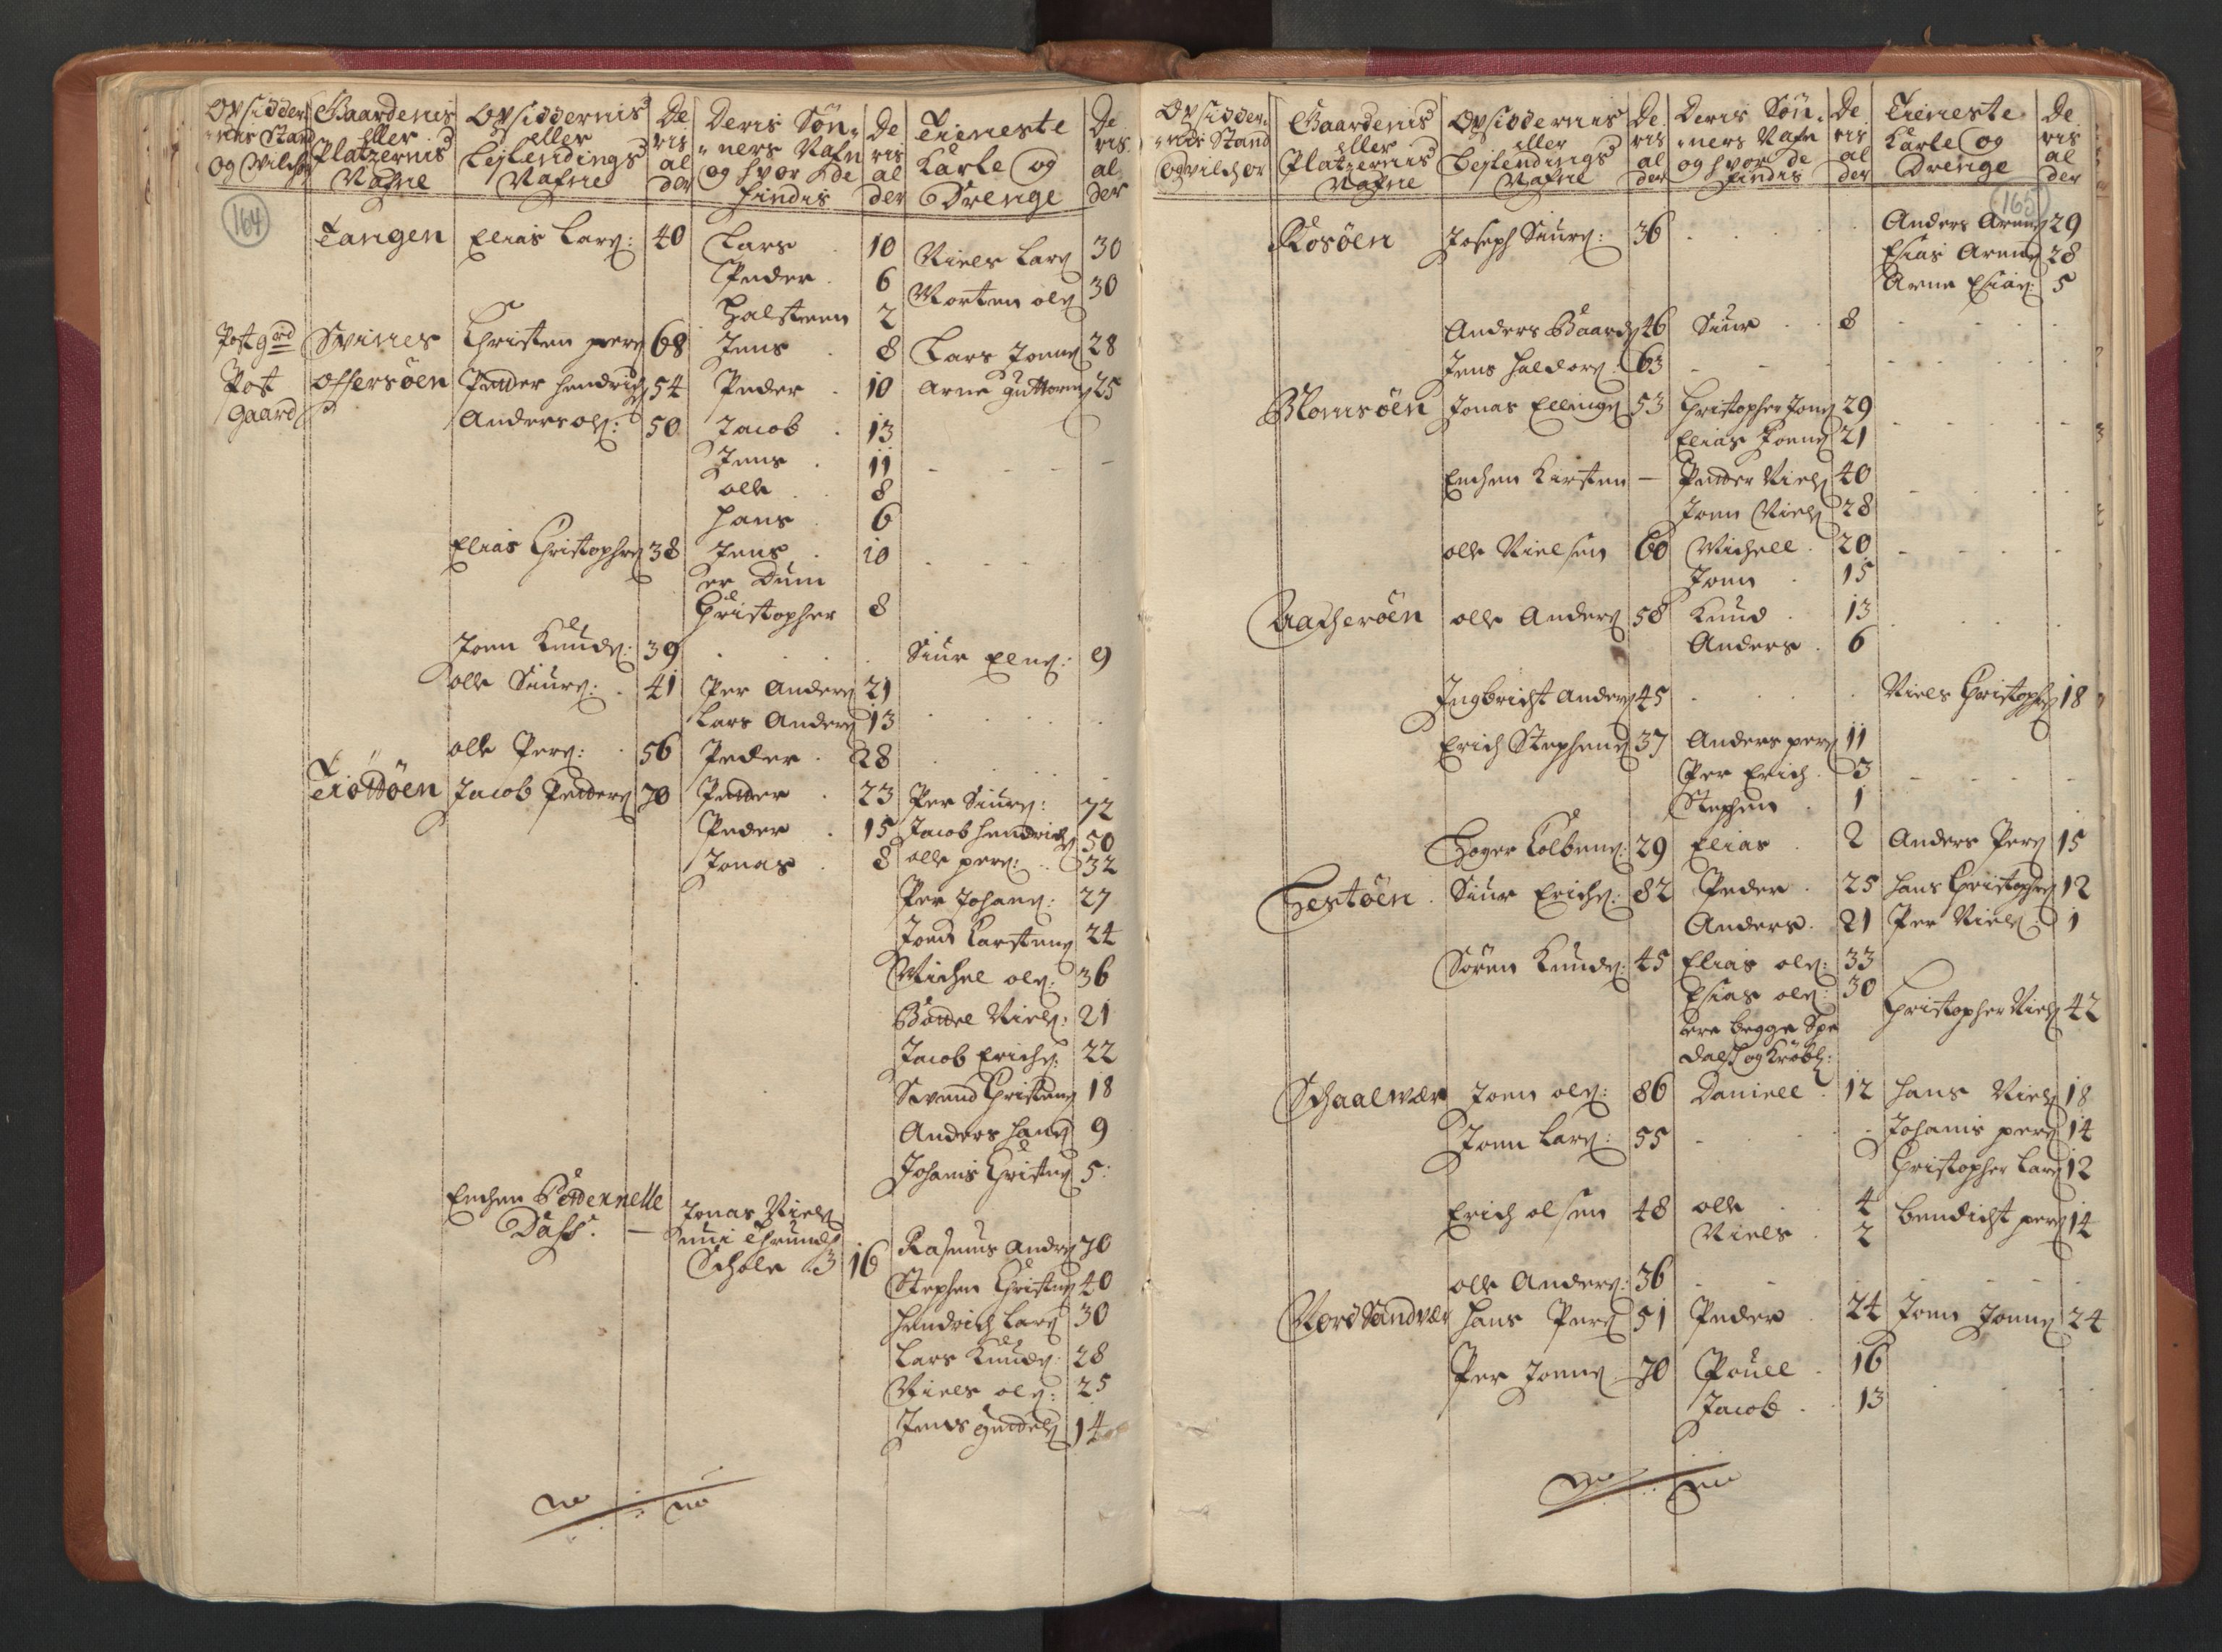 Opsidder-
nes Stand
og Vilchor
Gaardenis
eller
Platzernis
Nafne
Opsiddernis
eller
Lejlendings
Nafne
De
ris
al
der
Deris Søn-
ners Nafn
og hvor de
findis
De
ris
al
der
Tieneste
Karle og
Drenge
De
ris
al
der
164
Tangen Elias Lars: 40 Lars 10 Niels Lars 30
Peder 6 Morten ols 30
Halsteen 2
Postgrd Svines Christen pers 68 Jens 8 Lars Jons 28
Post Offersøen Petter Hendrichs 54 Peder 10 Arne Guttorms 25
gaard Anders ols: 50 Jacob 13
Jens 11 - - - -
olle 8
Hans 6
Elias Christophers 38 Jens 10
er Dum
Christopher 8
Joen Knuds: 39 Siur Elns: 9
olle Siurs: 41 Per Anders 21
Lars Anders 13
olle Pers: 56 Peder 28
Tiøttøen Jacob Petters 70 Petter 23 Per Siurs: 72
Peder 15 Jacob Hendrichs 50
Jonas 8 olle pers: 32
Per Johans: 27
Joen Carstens 24
Michel ols: 36
Bottel Niels: 21
Jacob Erichs: 22
Svend Christens 18
Anders Hans 9
Johanis Christens 5
Enchen Petternelle Jonas Niels
Dass. -
Schole 3 16 Rasmus Anders 70
Stephen Christens 40
Hendrich Lars 30
Lars Knuds: 28
Niels ols: 25
Jens 14
Opsidder-
nis Stand
og vilchor
Gaardenis
eller
Platzernis
Nafne
Opsiddernis
eller
Lejlendings
Nafne
De
ris
al
der
Deris Søn-
ners Nafn
og hvor de
findis
De
ris
al
der
Tieneste
Karle og
Drenge
De
ris
al
der
165
Rosøen Joseph Siurs: 36 Anders Arens 29
Esias Arens 28
Arne Esias: 5
Anders Baards 46 Siur 8
Jens Haldors: 63
Blomsøen Jonas Ellings 53 Christopher Jons 29
Elias Joens 21
Enchen Kirsten - Petter Niels 40
Joen Niels 28
olle Nielsen 60 Michell 20
Joen 15
Aacherøen olle Anders 58 Knud 13
Anders 6
Ingbricht Anders 45 Niels Christophers 18
Erich Stephens 37 Anders pers 11
Per Erich 3
Stephen 1
Holger Colbens: 29 Elias 2 Anders Pers 15
Hestøen Siur Erichs: 82 Peder 25 Hans Christophers 12
Anders 21 Per Niels 1
Søren Knuds: 45 Elias ols: 33
Esias ols: 30 Christopher Niels 42
ere begge Spe
dalsk og Krøbl:
Schaalvær Joen ols: 86 Daniell 12 Hans Niels 18
Joen Lars: 55 Johanis pers 14
Christopher Lars 12
Erich olsen 48 olle 4 bendicht pers 14
Niels 2
olle Anders: 36
Nord Sandvær Hans Pers 51 Peder 24 Joen Joens 24
Per Joens 70 Pouell 16
Jacob 13